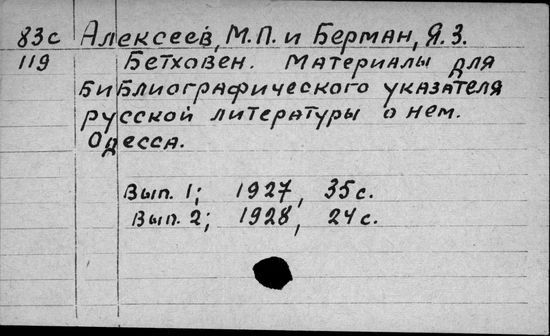 83с Алексеев, М.П. и Берман, Я.З.
119 Бетховен. Материалы для
библиографического указателя
русской литературы о нем.
Одесса.
Вып. 1; 1927, 35с.
Вып. 2; 1928, 24с.